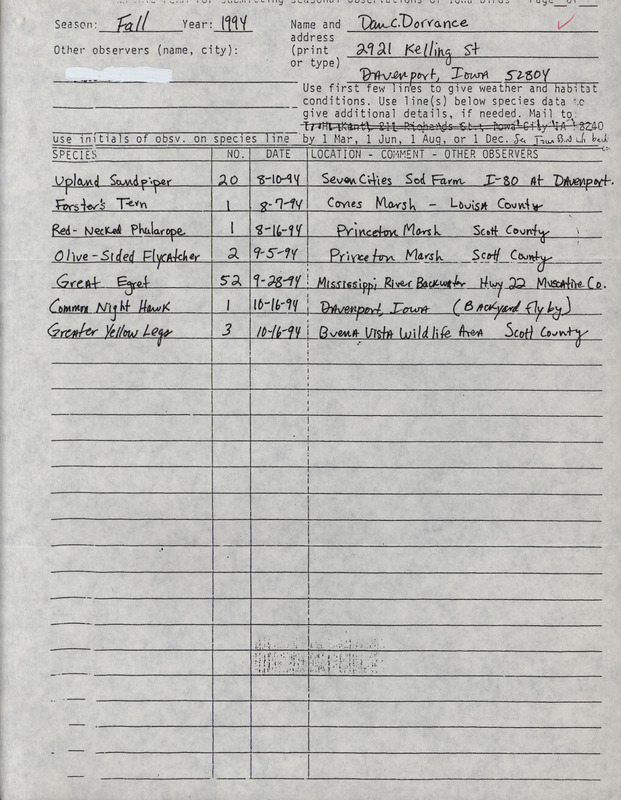 Season: Fall Year: 1994 Name and Dan C. Dorrance
address
Other observers (name, city): (print 2921 Kelling St
or type)
Davenport, Iowa 52804
Use first few lines to give weather and habitat
conditions. Use line(s) below species data to
give additional details, if needed. Mail to
use initials of obsv. on species line by 1 Mar, 1 Jun, 1 Aug, or 1 Dec.
SPECIES NO. DATE LOCATION - COMMENT - OTHER OBSERVERS
Upland Sandpiper 20 8-10-94 Seven Cities Sod Farm I-80 At Davenport.
Forster's Tern 1 8-7-94 Cones Marsh - Louisa County
Red-Necked Phalarope 1 8-16-94 Princeton Marsh Scott County
Olive-Sided Flycatcher 2 9-5-94 Princeton Marsh Scott County
Great Egret 52 9-28-94 Mississippi River Backwater Hwy 22 Muscatine Co.
Common Night Hawk 1 10-16-94 Davenport, Iowa (Backyard fly by)
Greater Yellow Legs 3 10-16-94 Buena Vista Wildlife Area Scott County